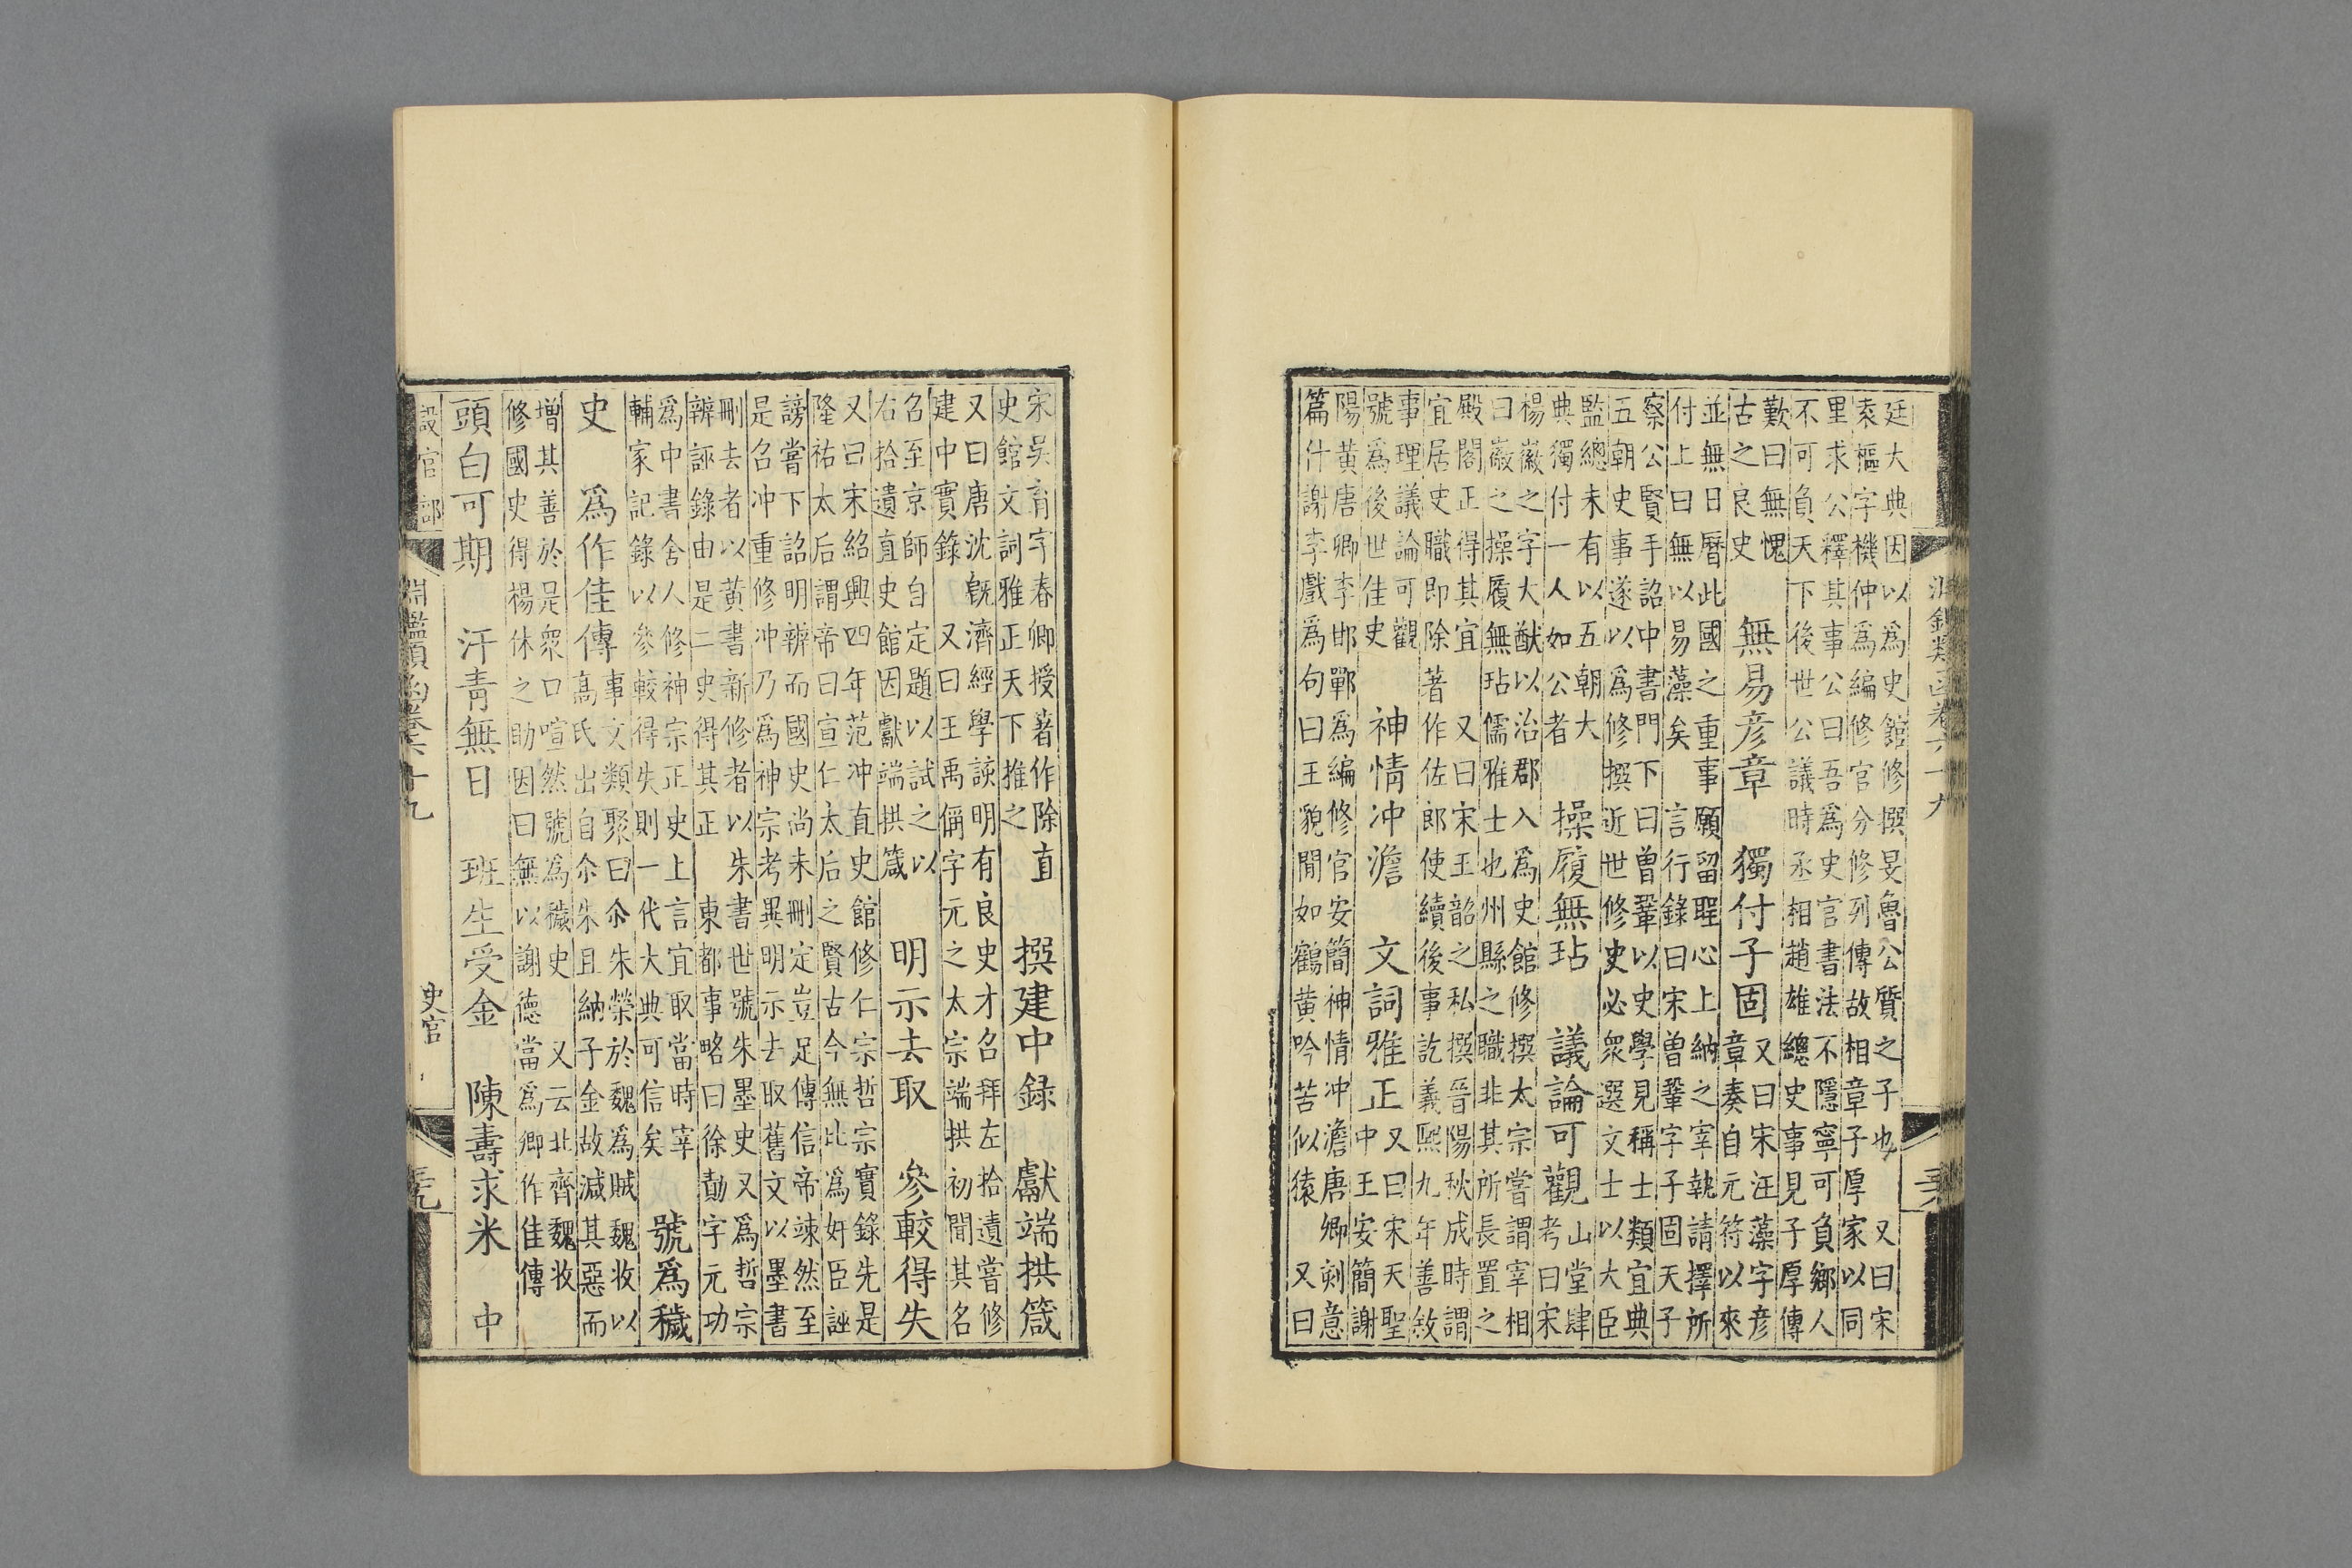 淵鑑類函卷六十九
廷大典因以為史館修撰旻魯公質之子也 又曰宋
袁樞字機仲為編修官分修列傳故相章子厚家以同
里求公釋其事公曰吾為史官書法不隱寧可負鄉人
不可負天下後世公議時丞相趙雄總史事見子厚傳
歎曰無愧
古之良史
無易彥章 獨付子固
又曰宋汪藻字彥
章奏自元符以來
並無日曆此國之重事願留聖心上納之宰執請擇所
付上曰無以易藻矣 言行錄曰宋曾鞏字子固天子
察公賢手詔中書門下曰曾鞏以史學見稱士類宜典
五朝史事遂以為修撰近世修史必眾選文士以大臣
監總未有以五朝大
典獨付一人如公者
操履無玷 議論可觀
山堂肆
考曰宋
楊徽之字大猷以治郡入為史館修撰太宗嘗謂宰相
曰徽之操履無玷儒雅士也州縣之職非其所長置之
殿閣正得其宜 又曰宋王韶之私撰晉陽秋成時謂
宜居史職即除著作佐郎使續後事訖義熙九年善敘
事理議論可觀
號為後世佳史
神情冲澹 文詞雅正
又曰宋天聖
中王安簡謝
陽黃唐卿李邯鄲為編修官安簡神情冲澹唐卿刻意
篇什謝李戲為句曰王貌閒如鶴黃吟苦似猿 又曰
宋吳育字春卿授著作除直
史館文詞雅正天下推之
撰建中録 獻端拱箴
又曰唐沈既濟經學該明有良史才召拜左拾遺嘗修
建中實錄 又曰王禹偁字元之太宗端拱初聞其名
召至京師自定題以試之以
右拾遺直史館因獻端拱箴
明示去取 參較得失
又曰宋紹興四年范冲直史館修仁宗哲宗實錄先是
隆祐太后謂帝曰宣仁太后之賢古今無比為奸臣誣
謗嘗下詔明辨而國史尚未刪定豈足傳信帝竦然至
是召冲重修冲乃為神宗考異明示去取舊文以墨書
刪去者以黃書新修者以朱書世號朱墨史又為哲宗
辨誣錄由是二史得其正 東都事略曰徐勣字元功
為中書舍人修神宗正史上言宜取當時宰
輔家記錄以參較得失則一代大典可信矣
號為穢
史 為作佳傳
事文類聚曰尒朱榮於魏為賊魏收以
高氏出自尒朱且納子金故減其惡而
增其善於是眾口喧然號為穢史 又云北齊魏收
修國史得楊休之助因曰無以謝德當為卿作佳傳
頭白可期 汗青無日 班生受金 陳壽求米 中
設官部 淵鑑類函卷六十九 史官